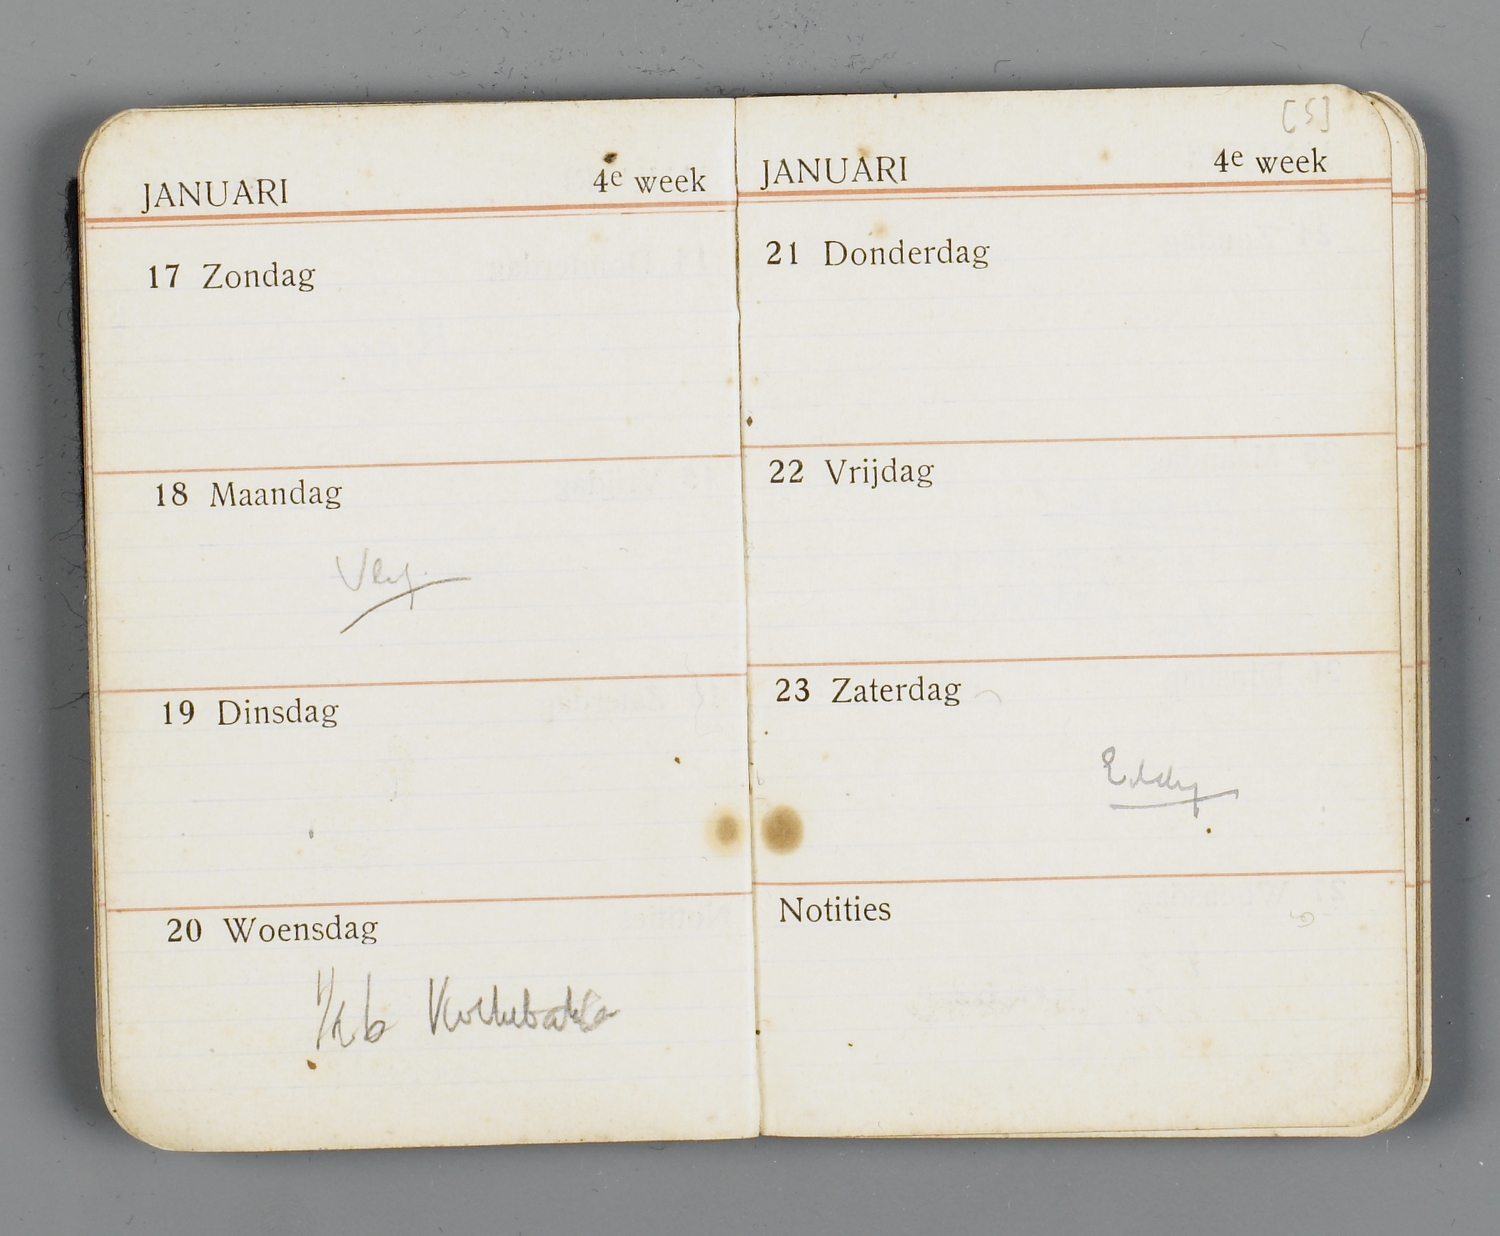 JANUARI 4e week
17 Zondag
18 Maandag
19 Dinsdag
20 Woensdag
[5]
JANUARI 4e week
21 Donderdag
22 Vrijdag
23 Zaterdag
Eddy
Notities